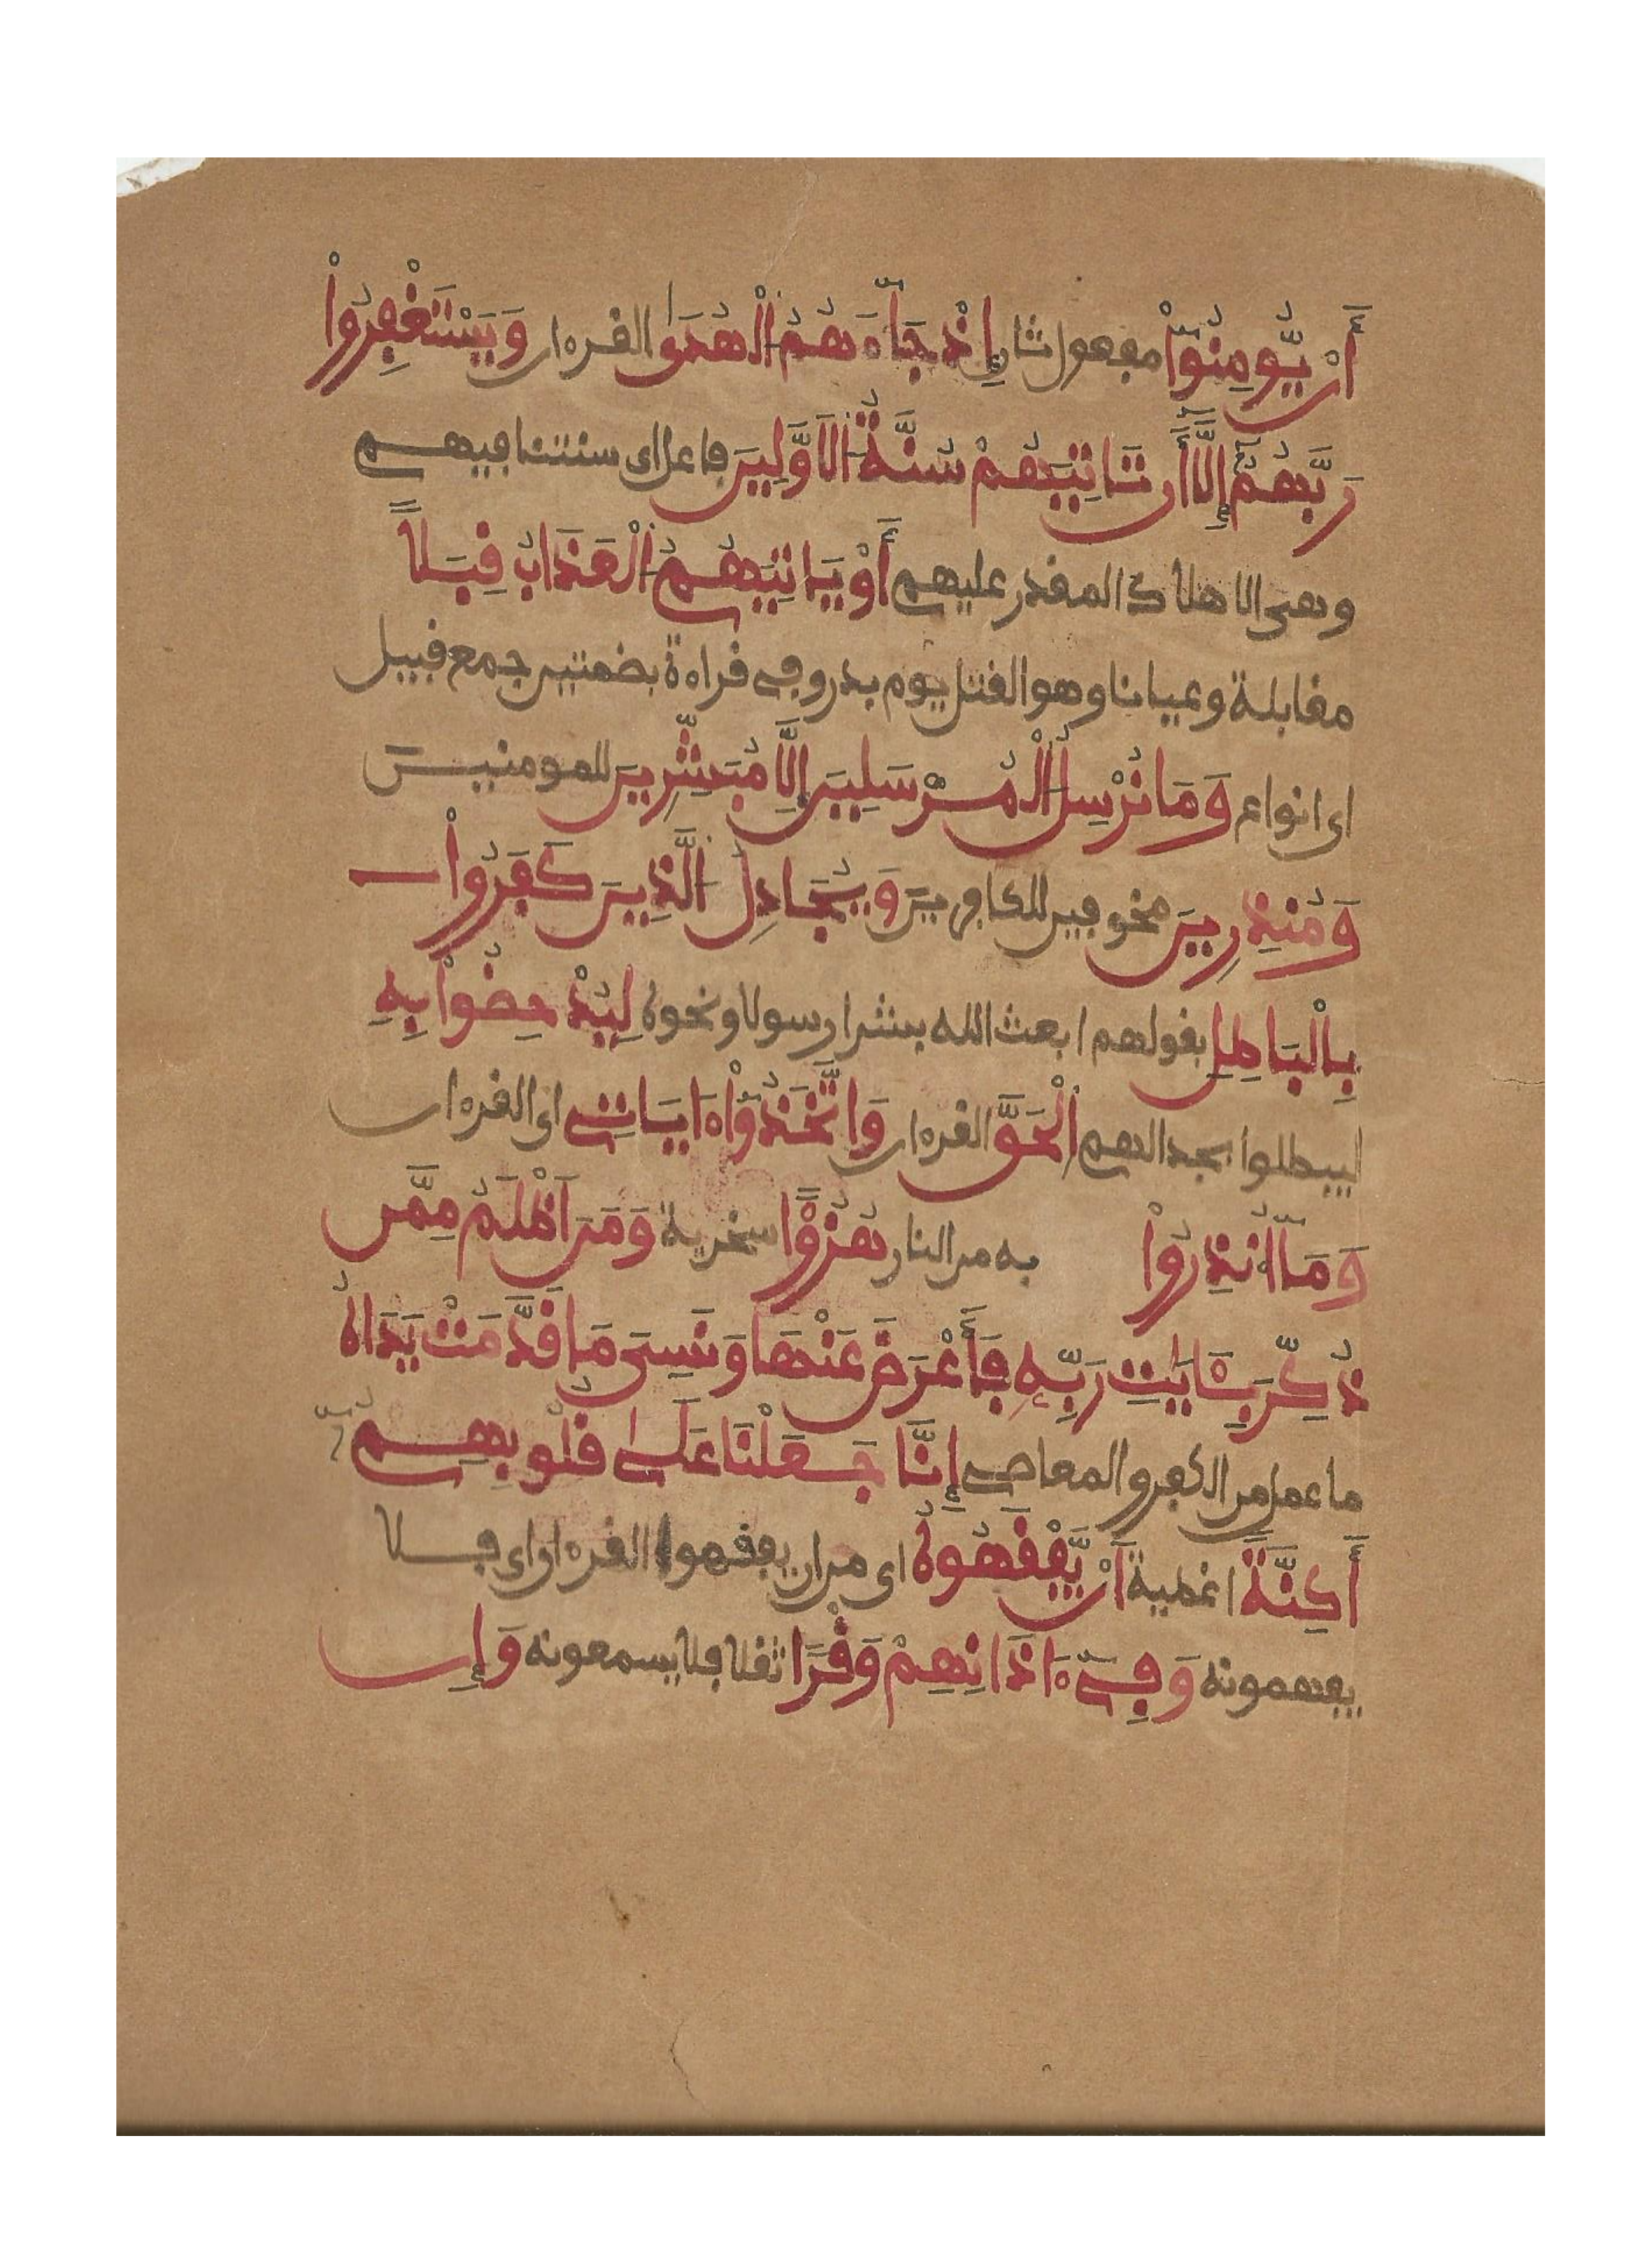 أَنْ يُّومِنُوٓاْ مفعول ثان إِذْ جَآءَهُمُ الْهُدَى القرءان وَيَسْتَغْفِرُواْ
رَبَّهُمُۥٓ إِلَّآ أَن تَاتِيَهُمْ سُنَّةُ الَاوَّلِينَ فاعل اى سنتنا فيهم
وهى الاهلاك المقدر عليهم أَوْ يَاتِيَهُمُ الْعَذَابُ قِبَلاً
مقابلة وعيانا وهو القتل يوم بدر وفي قراءة بضمتين جمع قبيل
اى انواع وَمَا نُرْسِلُ الْمُرْسَلِينَ إِلَّا مُبَشِّرِينَ للمومنين
وَمُنذِرِينَ مخوفين للكافرين وَيُجَادِلُ الَّذِينَ كَفَرُواْ
بِالْبَاطِلِ بقولهم ابعث الله بشرا رسولا ونحوه لِيُدْحِضُواْ بِهِ
ليبطلوا بجدالهم الْحَقَّ القرءان وَاتَّخَذُوٓاْ ءَايَاتِے اى القرءان
وَمَآ أُنذِرُواْ به من النار هُزُؤًا سخرية وَمَنَ اَظْلَمُ مِمَّن
ذُكِّرَ بِـَٔايَٰتِ رَبِّهِۦ فَأَعْرَضَ عَنْهَا وَنَسِىَ مَا قَدَّمَتْ يَدَاهُ
ما عمل من الكفر والمعاصي إِنَّا جَعَلْنَا عَلَىٰ قُلُوبِهِمُۥٓ
أَكِنَّةً اغطية أَنْ يَّفْقَهُوهُ اى من ان يفقهوا القرءان اى فلا
يفهمونه وَفِےٓ ءَاذَانِهِمْ وَقْرًا ثقلا فلا يسمعونه وَإِن